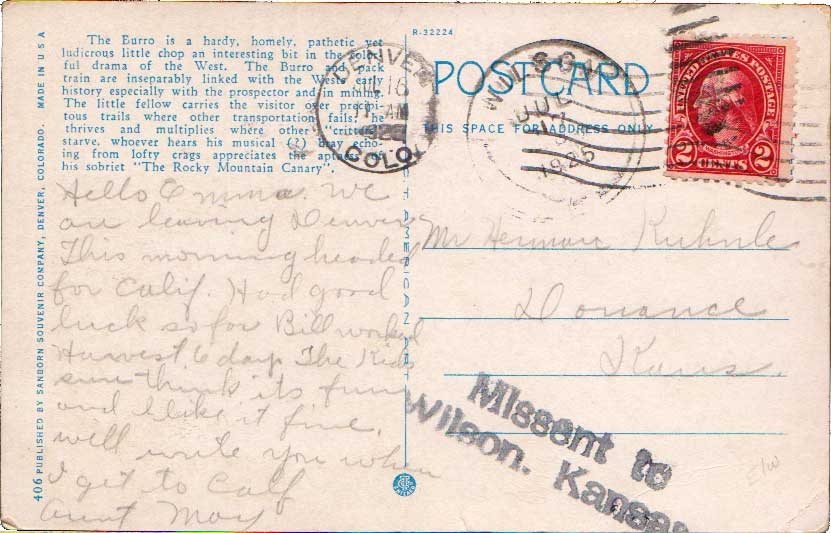 The Burro is a hardy, homely, pathetic yet
ludicrous little chop an interesting bit in the color-
ful drama of the West. The Burro and pack
train are inseparably linked with the Wests early
history especially with the prospector and in mining.
The little fellow carries the visitor over precipi-
tous trails where other transportation fails. He
thrives and multiplies where other "critters"
starve, whoever hears his musical (?) bray echo-
ing from lofty crags appreciates the aptness of
his sobriet "The Rocky Mountain Canary".
Hello Emma. We
are leaving Denver
This morning headed
for Calif. Had good
luck so far Bill worked
Harvest 6 days The Kids
sure think its fun
and I like it fine.
will write you when
I get to Calf
Aunt May
406 PUBLISHED BY SANBORN SOUVENIR COMPANY, DENVER, COLORADO. MADE IN U S A
R-32224
POSTCARD
THIS SPACE FOR ADDRESS ONLY
DENVER
16
AM
COLO.
WILSON
JUL
17
1925
UNITED STATES POSTAGE
WASHINGTON
2 CENTS 2
Mr Herman Kuhnle
Dorrance
Kans.
Missent to
Wilson, Kansas